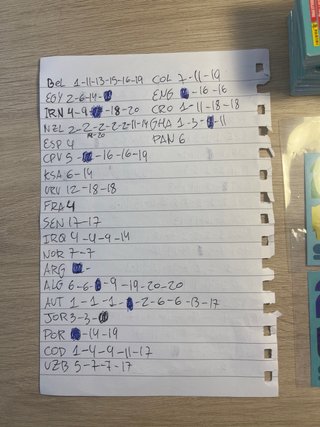 BEL 1-11-13-15-16-19 COL 7-11-19
EGY 2-6-14- ENG -16-16
IRN 4-9- -18-20 CRO 1-11-18-18
NZL 2-2-2-2-2-11-14 GHA 1-3- -11
18-20
ESP 4 PAN 6
CPV 5- -16-16-19
KSA 6-14
URU 12-18-18
FRA 4
SEN 17-17
IRQ 4-4-9-14
NOR 7-7
ARG -
ALG 6-6- -9-19-20-20
AUT 1-1-1- -2-6-6-13-17
JOR 3-3-
POR -14-19
COD 1-4-9-11-17
UZB 5-7-7-17